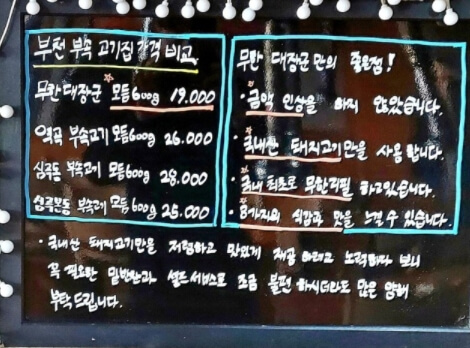 부천 부속 고기집 가격 비교
무한대장군 모듬600g 19.000
역곡 부속고기 모듬600g 26.000
심곡동 부속고기 모듬600g 28.000
심곡본동 부속고기 모듬600g 25.000
무한 대장군 만의 좋은점!
· 금액 인상을 하지 않았습니다.
· 국내산 돼지고기만을 사용합니다.
· 국내 최초로 무한리필 하고있습니다.
· 8가지의 식감과 맛을 느낄 수 있습니다.
· 국내산 돼지고기만을 저렴하고 맛있게 제공 하려고 노력하다 보니
꼭 필요한 밑반찬과 셀프서비스로 조금 불편 하시더라도 많은 양해
부탁드립니다.